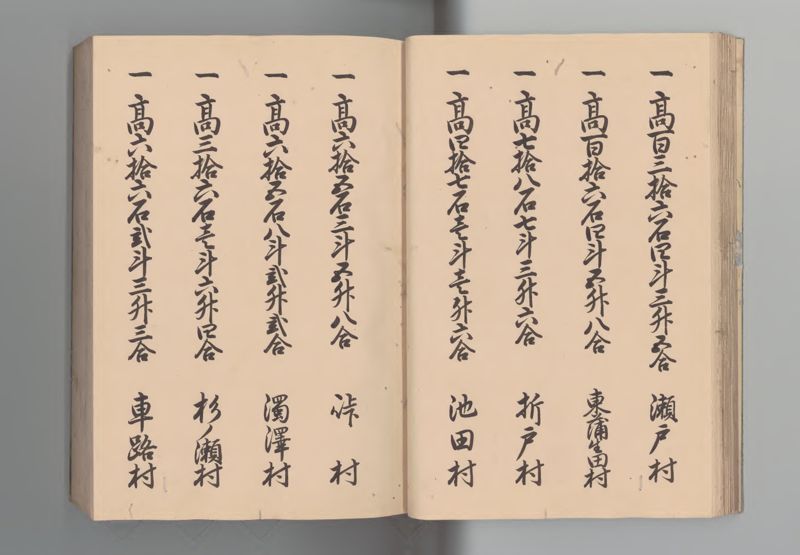 一 高百三拾六石四斗三升五合 瀬戸村
一 高百拾六石四斗五升八合 東蒲生田村
一 高七拾八石七斗三升六合 折戸村
一 高四拾七石壱斗壱升六合 池田村
一 高六拾五石三斗五升八合 峠村
一 高六拾五石八斗弐升弐合 濁澤村
一 高三拾六石壱斗六升四合 杉ノ瀬村
一 高六拾六石弐斗三升三合 車路村